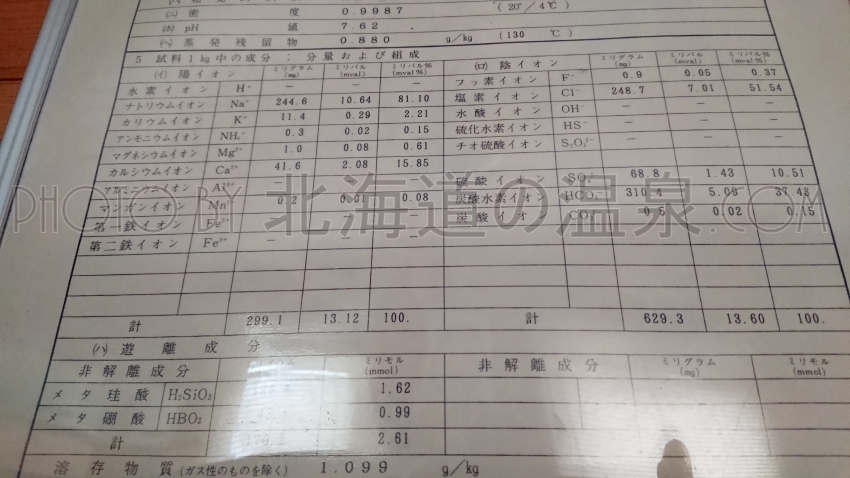 (ニ) 密 度 0.9987 (20°/4℃)
(ホ) pH 値 7.62
(ヘ) 蒸発残留物 0.880 g/kg (130 ℃)
5 試料1kg中の成分;分量および組成
(イ) 陽イオン ミリグラム(mg) ミリバル(mval) ミリバル%(mval%) (ロ) 陰イオン ミリグラム(mg) ミリバル(mval) ミリバル%(mval%)
水素イオン H⁺ — — — フッ素イオン F⁻ 0.9 0.05 0.37
ナトリウムイオン Na⁺ 244.6 10.64 81.10 塩素イオン Cl⁻ 248.7 7.01 51.54
カリウムイオン K⁺ 11.4 0.29 2.21 水酸イオン OH⁻ — — —
アンモニウムイオン NH₄⁺ 0.3 0.02 0.15 硫化水素イオン HS⁻ — — —
マグネシウムイオン Mg²⁺ 1.0 0.08 0.61 チオ硫酸イオン S₂O₃²⁻ — — —
カルシウムイオン Ca²⁺ 41.6 2.08 15.85
アルミニウムイオン Al³⁺ — — — 硫酸イオン SO₄²⁻ 68.8 1.43 10.51
マンガンイオン Mn²⁺ 0.2 0.01 0.08 炭酸水素イオン HCO₃⁻ 310.4 5.09 37.43
第一鉄イオン Fe²⁺ — — — 炭酸イオン CO₃²⁻ 0.5 0.02 0.15
第二鉄イオン Fe³⁺ — — —
計 299.1 13.12 100. 計 629.3 13.60 100.
(ハ) 遊離成分
非解離成分 ミリモル(mmol) 非解離成分 ミリグラム(mg) ミリモル(mmol)
メタ珪酸 H₂SiO₃ 1.62
メタ硼酸 HBO₂ 0.99
計 2.61
溶存物質(ガス性のものを除く) 1.099 g/kg
PHOTO BY 北海道の温泉.com